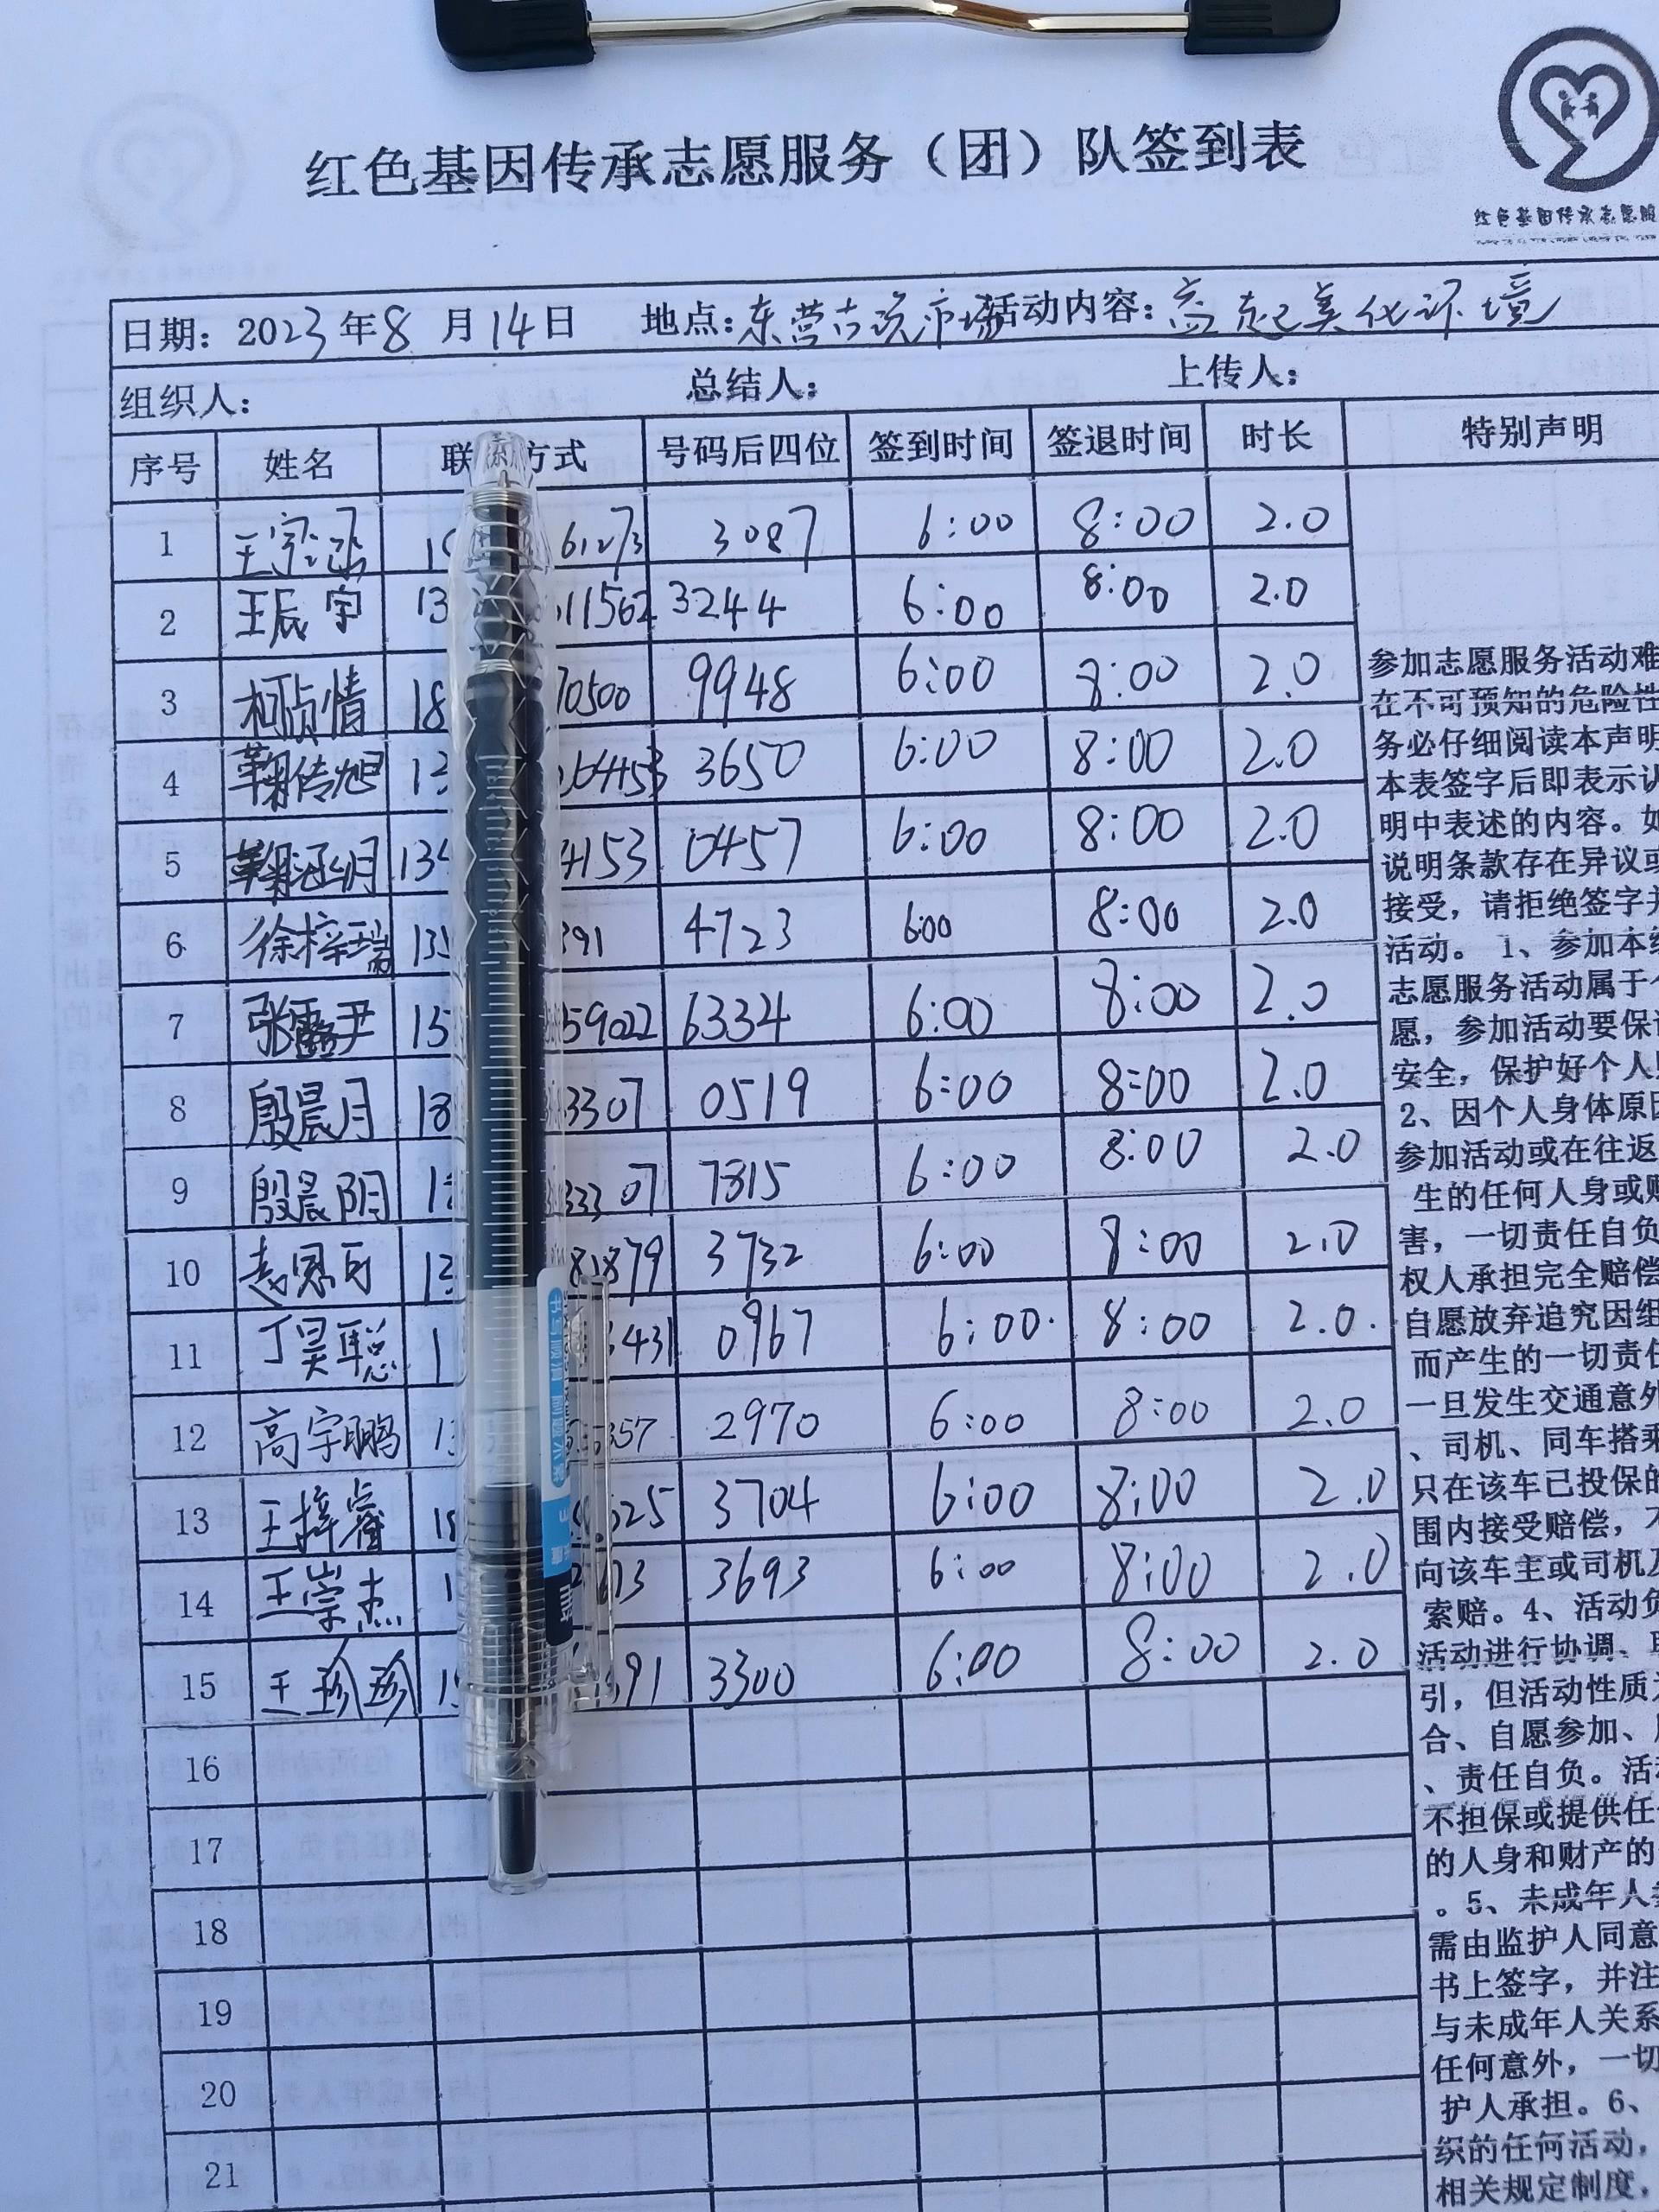 红色基因传承志愿服务（团）队签到表
红色基因传承志愿服
日期：2023年8月14日 地点：东营古玩市场 活动内容：益起美化环境
组织人： 总结人： 上传人：
序号 姓名 联系方式 号码后四位 签到时间 签退时间 时长 特别声明
1 王宇涵 61273 3087 6:00 8:00 2.0
2 王辰宇 13 11562 3244 6:00 8:00 2.0
3 柯贞情 18 70500 9948 6:00 8:00 2.0
4 鞠传旭 13 6453 3650 6:00 8:00 2.0
5 鞠涵月 134 4153 0457 6:00 8:00 2.0
6 徐梓瑞 135 391 4723 6:00 8:00 2.0
7 张露尹 15 59022 6334 6:00 8:00 2.0
8 殷晨月 18 3307 0519 6:00 8:00 2.0
9 殷晨阴 1 333 07 7315 6:00 8:00 2.0
10 袁恩可 13 81879 3732 6:00 8:00 2.0
11 丁昊聪 1 431 0967 6:00. 8:00 2.0.
12 高宇鹏 13 357 2970 6:00 8:00 2.0
13 王梓睿 18 525 3704 6:00 8:00 2.0
14 王崇杰 1 613 3693 6:00 8:00 2.0
15 王珍珍 15 391 3300 6:00 8:00 2.0
16
17
18
19
20
21
参加志愿服务活动难
在不可预知的危险性
务必仔细阅读本声明
本表签字后即表示认
明中表述的内容。如
说明条款存在异议或
接受，请拒绝签字并
活动。 1、参加本组
志愿服务活动属于个
愿，参加活动要保证
安全，保护好个人财
2、因个人身体原因
参加活动或在往返
生的任何人身或财
害，一切责任自负
权人承担完全赔偿
自愿放弃追究因组
而产生的一切责任
一旦发生交通意外
、司机、同车搭乘
只在该车已投保的
围内接受赔偿，不
向该车主或司机及
索赔。4、活动负
活动进行协调、联
引，但活动性质为
合、自愿参加、风
、责任自负。活动
不担保或提供任何
的人身和财产的
。5、未成年人参
需由监护人同意
书上签字，并注
与未成年人关系
任何意外，一切
护人承担。6、
织的任何活动，
相关规定制度，